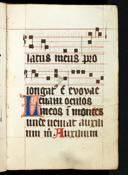 latus meus pro
longat' ē evovae
Levavi oculos
meos i montes
unde veniat auxili
um m Auxilium